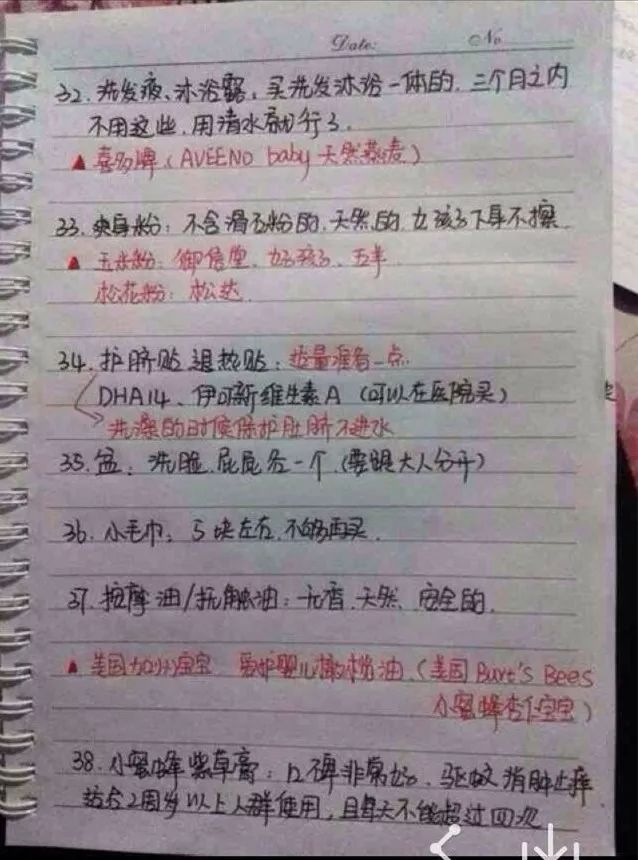 Date: No
32. 洗发液、沐浴露: 买洗发沐浴一体的. 三个月之内
不用这些, 用清水就行了.
▲ 喜多牌 (AVEENO baby 天然燕麦)
33. 爽身粉: 不含滑石粉的, 天然的, 女孩子下身不擦
▲ 玉米粉: 御倍堂、好孩子、五羊
松花粉: 松达
34. 护脐贴 退热贴: 适量准备一点
DHA14、伊可新维生素A (可以在医院买)
洗澡的时候保护肚脐不进水
35. 盆: 洗脸、屁屁各一个 (要跟大人分开)
36. 小毛巾: 5块左右, 不够再买.
37. 按摩油/抚触油: 无香、天然、安全的.
▲ 美国加州宝宝 爱护婴儿橄榄油 (美国 Burt's Bees
小蜜蜂杏仁宝宝)
38. 小蜜蜂紫草膏: 口碑非常好, 驱蚊 消肿止痒
适合2周岁以上人群使用, 且每天不能超过四次